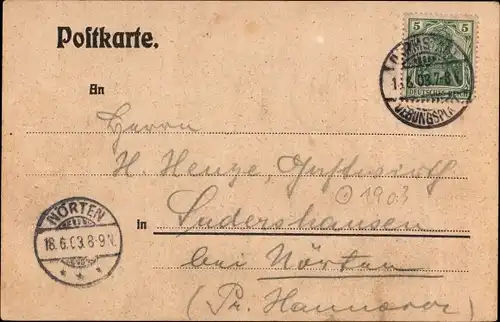 Postkarte.
5 5
DEUTSCHES REICH
1 .6.03.7-8 N.
An
Herrn
H. Henze, Gastwirth
© 1903
NÖRTEN
18.6.03.8-9 V.
in Sudershausen
bei Nörten
(Pr. Hannover)